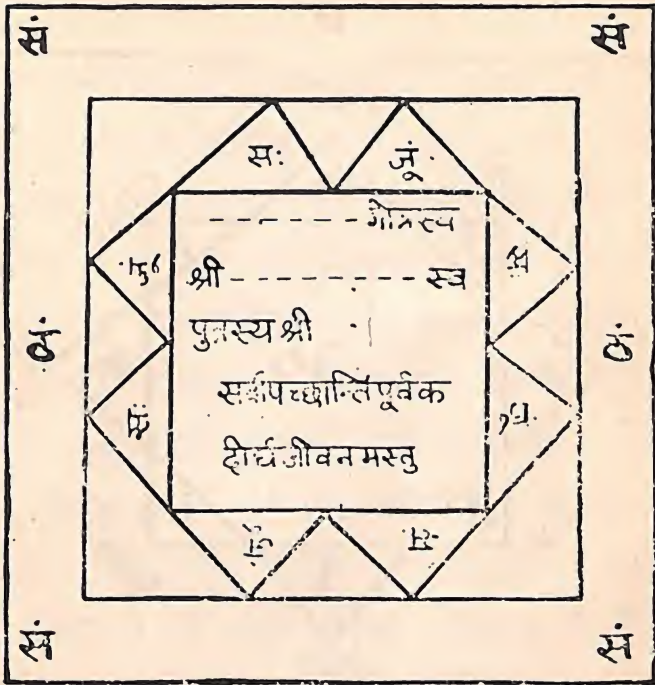 सं सं
सः जूं
जूं सः
------गोत्रस्य
श्री---------स्व
पुत्रस्य श्री
सर्वापच्छान्तिपूर्वक
दीर्घजीवनमस्तु
वं वं
सः जूं
जूं सः
सं सं